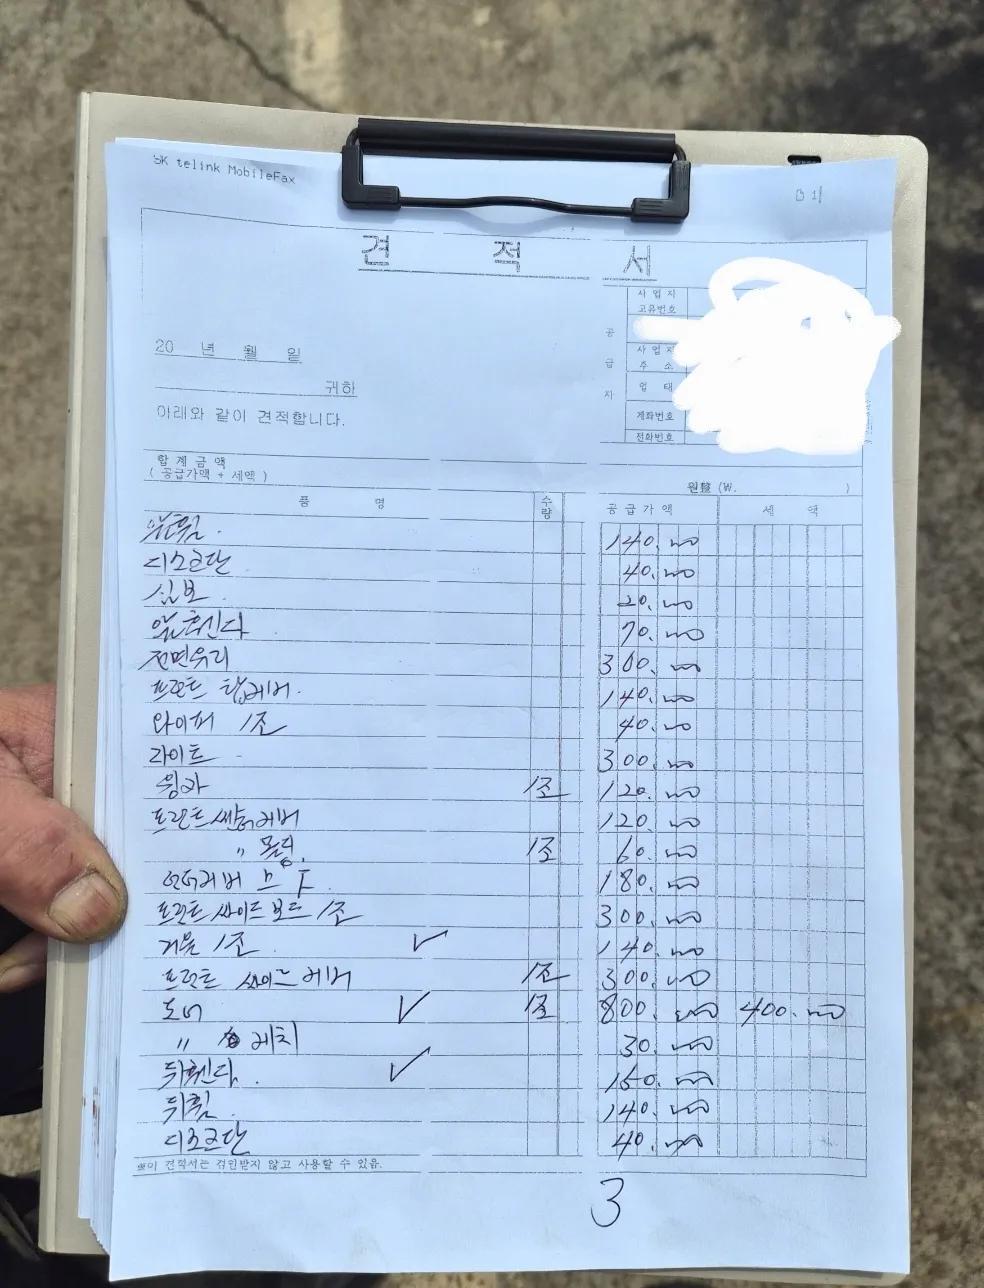 SK telink MobileFax
견 적 서
사업자
고유번호
공
20 년 월 일
사업자
급 주 소
귀하
자 업 태
아래와 같이 견적합니다.
계좌번호
전화번호
합계금액
(공급가액 + 세액)
원整 (W. )
품 명 수량 공급가액 세 액
앞휠. 140.000
디스크판 40.000
심보. 20.000
앞휀다 70.000
전면유리 300.000
프런트 탑커버. 140.000
와이퍼 1조 40.000
라이트 300.000
윙카 1조 120.000
프런트 커버 120.000
" 몰딩. 1조 60.000
언더커버 180.000
프런트 싸이드 보드 1조 300.000
거울 1조. ✓ 140.000
프런트 싸이드 커버 1조 300.000
도어 ✓ 1조 800.000 400.000
" 케치 30.000
뒤휀다. ✓ 150.000
뒤휠. 140.000
디스크판 40.000
※이 견적서는 검인받지 않고 사용할 수 있음.
3